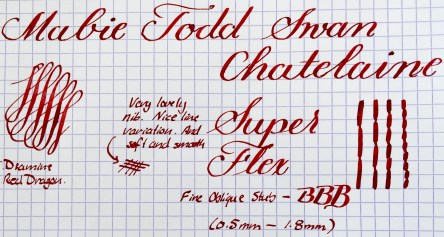 Mabie Todd Swan
Chatelaine
Very lovely
nib. Nice line
variation. And
soft and smooth
Super
Flex
Diamine
Red Dragon.
Fine Oblique Stub – BBB
(0.5mm – 1.8mm)